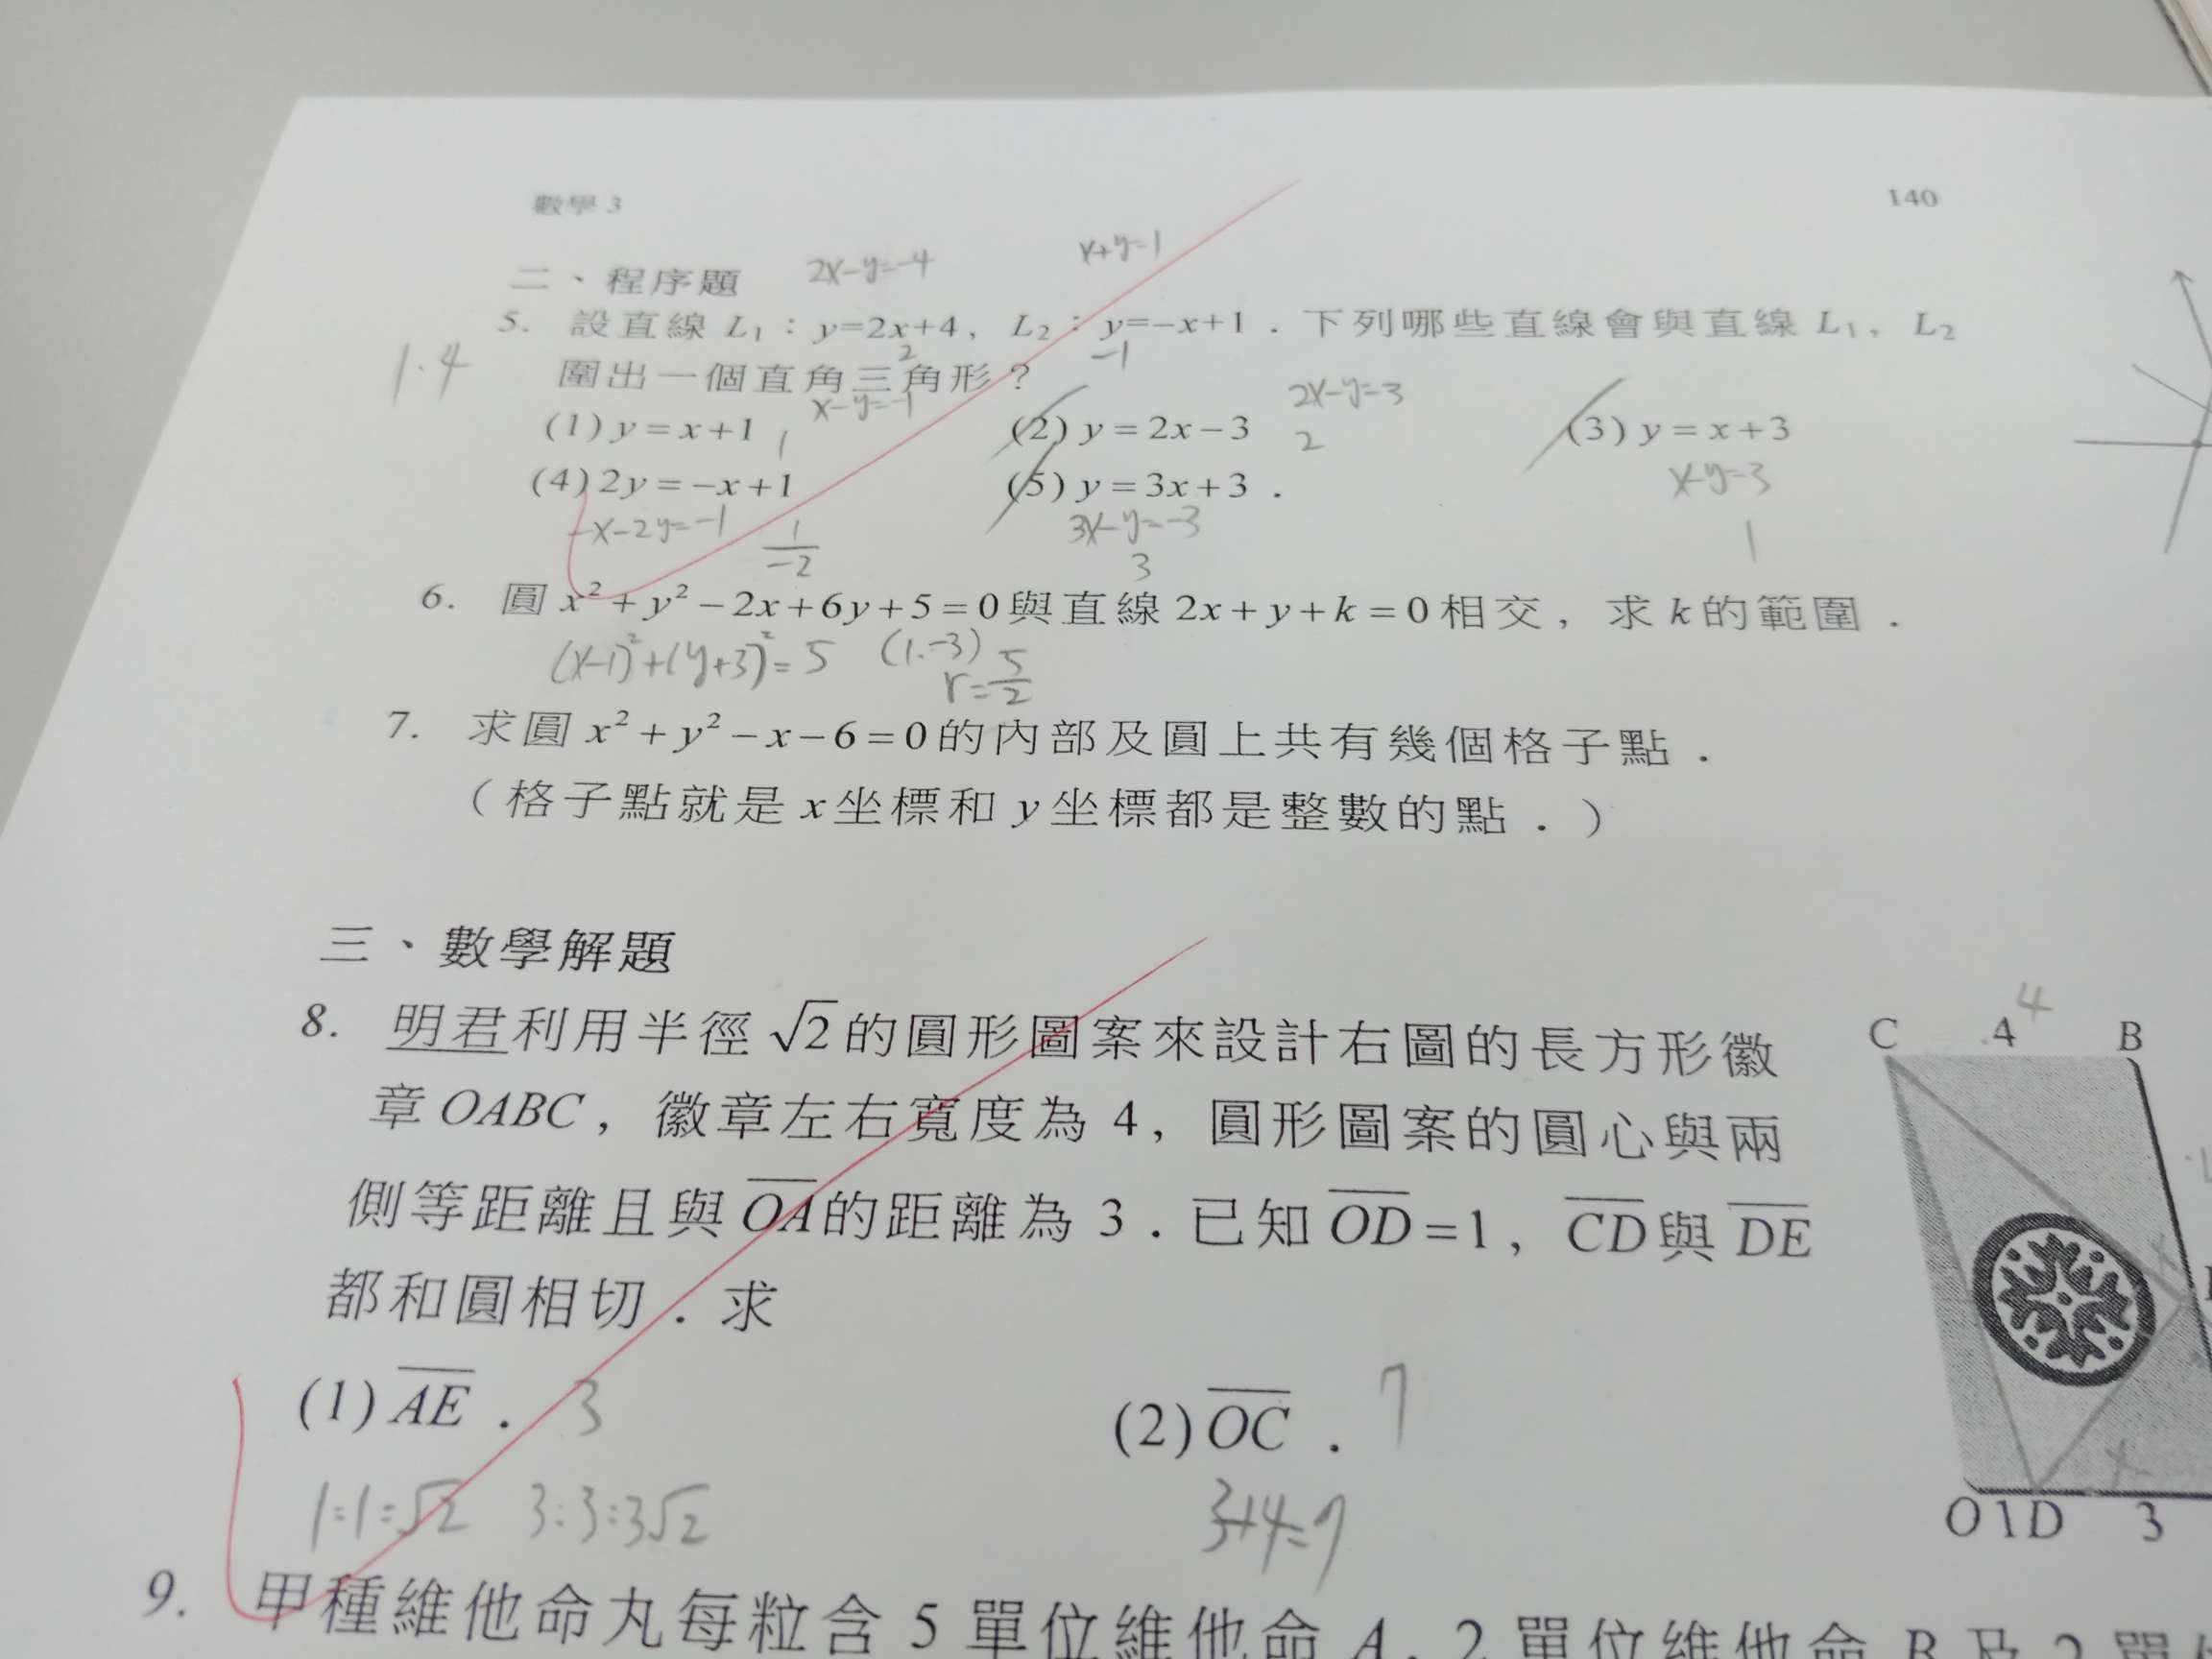 數學 3
140
二、程序題 2x-y=-4 x+y=1
5. 設直線 L₁：y=2x+4，L₂：y=-x+1．下列哪些直線會與直線 L₁，L₂
1.4
2 -1
圍出一個直角三角形？
x-y=-1 2x-y=3
(1) y=x+1 1 (2) y=2x-3 2 (3) y=x+3
x-y=-3
(4) 2y=-x+1 (5) y=3x+3．
-x-2y=-1 1/-2 3x-y=-3 1
3
6. 圓 x²+y²-2x+6y+5=0 與直線 2x+y+k=0 相交，求 k 的範圍．
(x-1)²+(y+3)²=5 (1.-3) r=5/2
7. 求圓 x²+y²-x-6=0 的內部及圓上共有幾個格子點．
（格子點就是 x 坐標和 y 坐標都是整數的點．）
三、數學解題
8. 明君利用半徑 √2 的圓形圖案來設計右圖的長方形徽
章 OABC，徽章左右寬度為 4，圓形圖案的圓心與兩
側等距離且與 OA 的距離為 3．已知 OD=1，CD 與 DE
都和圓相切．求
(1) AE． 3 (2) OC． 7
1:1:√2 3:3:3√2 3+4=7
4
C 4 B
O 1 D 3
9. 甲種維他命丸每粒含 5 單位維他命 A，2 單位維他命 B 及 2 單位